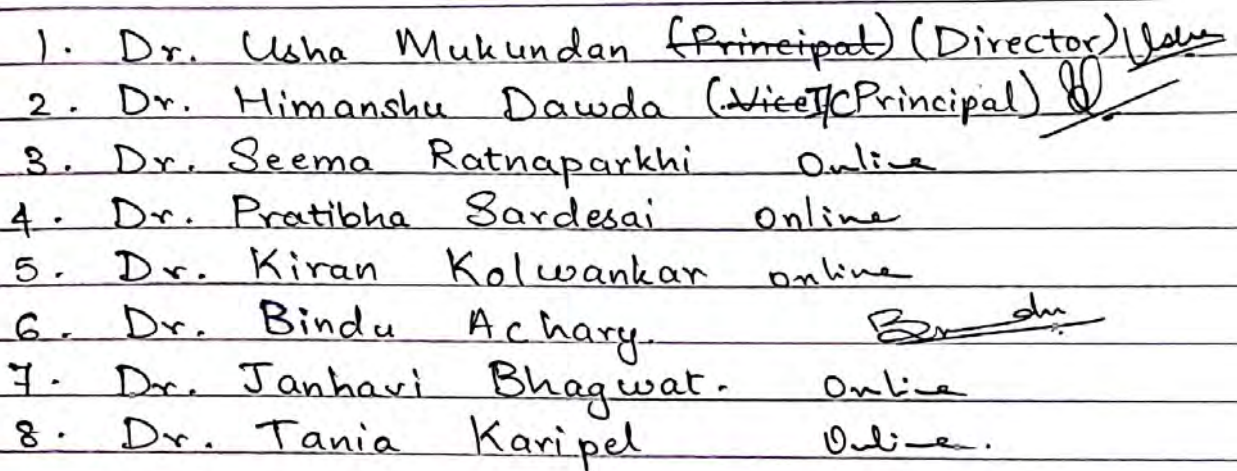 1. Dr. Usha Mukundan (Principal) (Director) Usha
2. Dr. Himanshu Dawda (Vice I/C Principal)
3. Dr. Seema Ratnaparkhi Online
4. Dr. Pratibha Sardesai online
5. Dr. Kiran Kolwankar online
6. Dr. Bindu Achary. Bindu
7. Dr. Janhavi Bhagwat. Online
8. Dr. Tania Karipel Online.